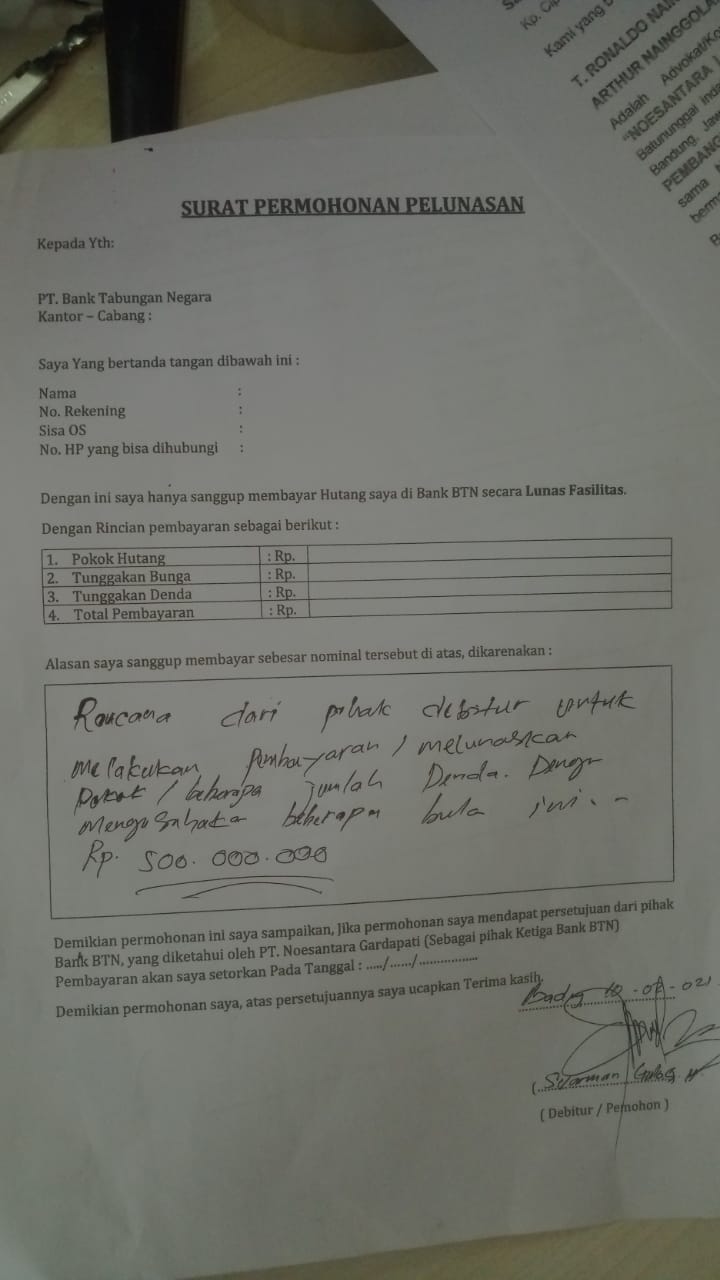 SURAT PERMOHONAN PELUNASAN
Kepada Yth:
PT. Bank Tabungan Negara
Kantor – Cabang :
Saya Yang bertanda tangan dibawah ini :
Nama :
No. Rekening :
Sisa OS :
No. HP yang bisa dihubungi :
Dengan ini saya hanya sanggup membayar Hutang saya di Bank BTN secara Lunas Fasilitas.
Dengan Rincian pembayaran sebagai berikut :
1. Pokok Hutang : Rp.
2. Tunggakan Bunga : Rp.
3. Tunggakan Denda : Rp.
4. Total Pembayaran : Rp.
Alasan saya sanggup membayar sebesar nominal tersebut di atas, dikarenakan :
Rencana dari pihak debitur untuk
melakukan pembayaran / melunaskan
pokok / beberapa jumlah Denda.
beberapa bula ini. -
Rp. 500.000.000
Demikian permohonan ini saya sampaikan, Jika permohonan saya mendapat persetujuan dari pihak
Bank BTN, yang diketahui oleh PT. Noesantara Gardapati (Sebagai pihak Ketiga Bank BTN)
Pembayaran akan saya setorkan Pada Tanggal : ...../....../................
Demikian permohonan saya, atas persetujuannya saya ucapkan Terima kasih.
( Debitur / Pemohon )
Kp.
Kami yang
T. RONALDO
ARTHUR
Adalah
"NOESANTARA
Batununggal
Bandung,
sama